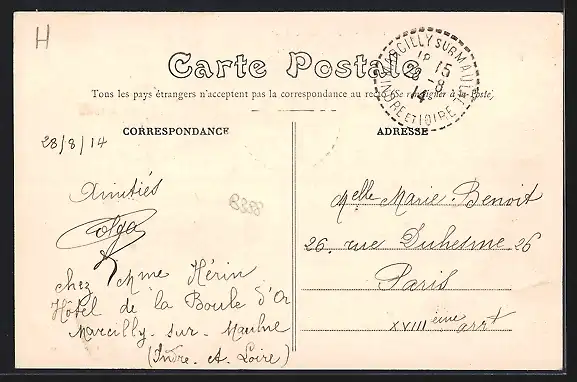 H
Carte Postale
MARCILLY SUR MAULNE
18 15
28 -8
14
INDRE ET LOIRE
Tous les pays étrangers n'acceptent pas la correspondance au recto (Se renseigner à la Poste)
CORRESPONDANCE
28/8/14
Amitiés
Olga
chez Mme Hérin
Hôtel de la Boule d'Or
Marcilly-sur-Maulne
(Indre-et-Loire)
8388
ADRESSE
Melle Marie Benoit
26. rue Duhesme 26
Paris
XVIII ème arrt